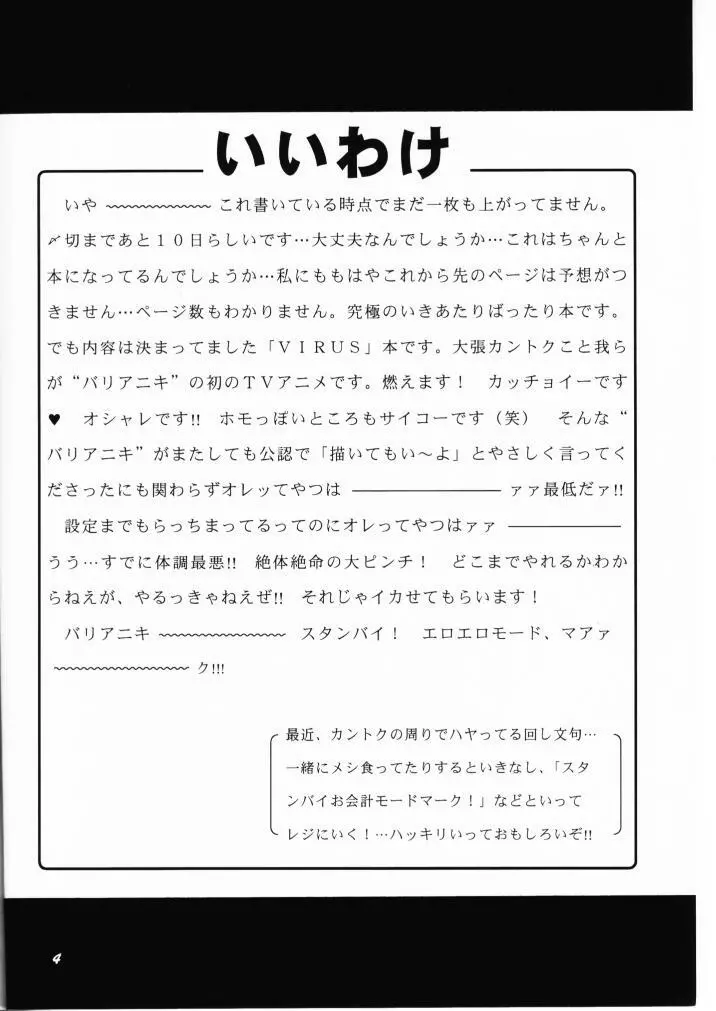 いいわけ
いや 〜〜〜〜〜〜 これ書いている時点でまだ一枚も上がってません。
〆切まであと１０日らしいです…大丈夫なんでしょうか…これはちゃんと
本になってるんでしょうか…私にももはやこれから先のページは予想がつ
きません…ページ数もわかりません。究極のいきあたりばったり本です。
でも内容は決まってました「ＶＩＲＵＳ」本です。大張カントクこと我ら
が“バリアニキ”の初のＴＶアニメです。燃えます！　カッチョイーです
♥　オシャレです!!　ホモっぽいところもサイコーです（笑）　そんな“
バリアニキ”がまたしても公認で「描いてもい〜よ」とやさしく言ってく
ださったにも関わらずオレッてやつは ――――――― ァァ最低だァ!!
設定までもらっちまってるってのにオレってやつはァァ ―――――
うう…すでに体調最悪!!　絶体絶命の大ピンチ！　どこまでやれるかわか
らねえが、やるっきゃねえぜ!!　それじゃイカせてもらいます！
バリアニキ 〜〜〜〜〜〜〜 スタンバイ！　エロエロモード、マアァ
〜〜〜〜〜〜〜 ク!!!
最近、カントクの周りでハヤってる回し文句…
一緒にメシ食ってたりするといきなし、「スタ
ンバイお会計モードマーク！」などといって
レジにいく！…ハッキリいっておもしろいぞ!!
4